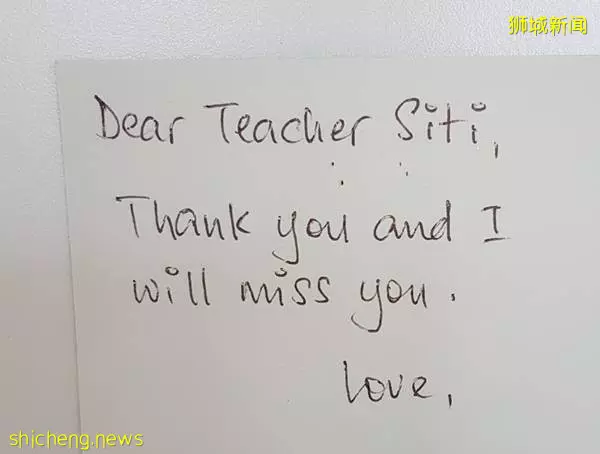 狮城新闻
Dear Teacher Siti,
Thank you and I
will miss you.
Love,
shicheng.news